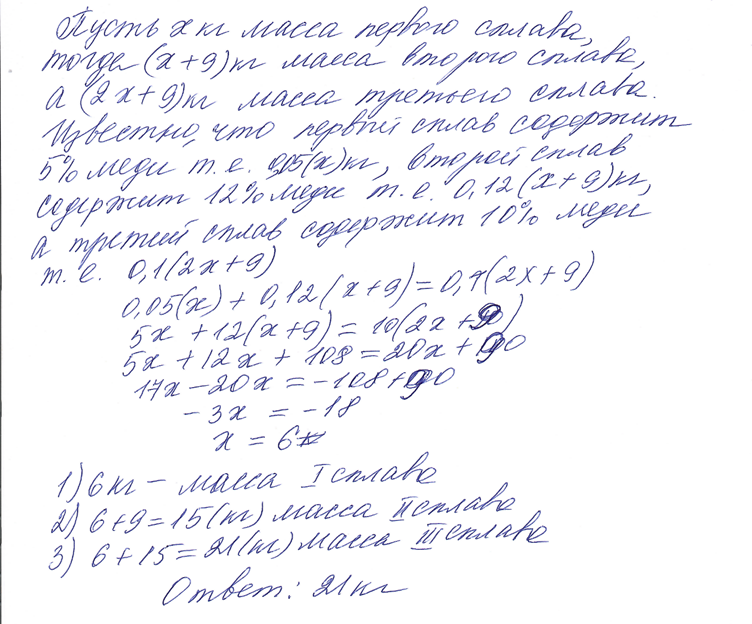 Пусть x кг масса первого сплава,
тогда (x+9)кг масса второго сплава,
а (2x+9)кг масса третьего сплава.
Известно, что первый сплав содержит
5% меди т.е. 0,05(x)кг, второй сплав
содержит 12% меди т.е. 0,12(x+9)кг,
а третий сплав содержит 10% меди
т.е. 0,1(2x+9)
0,05(x) + 0,12(x+9) = 0,1(2x+9)
5x + 12(x+9) = 10(2x+9)
5x + 12x + 108 = 20x + 90
17x - 20x = -108 + 90
-3x = -18
x = 6
1) 6 кг - масса I сплава
2) 6+9=15(кг) масса II сплава
3) 6+15=21(кг) масса III сплава
Ответ: 21 кг